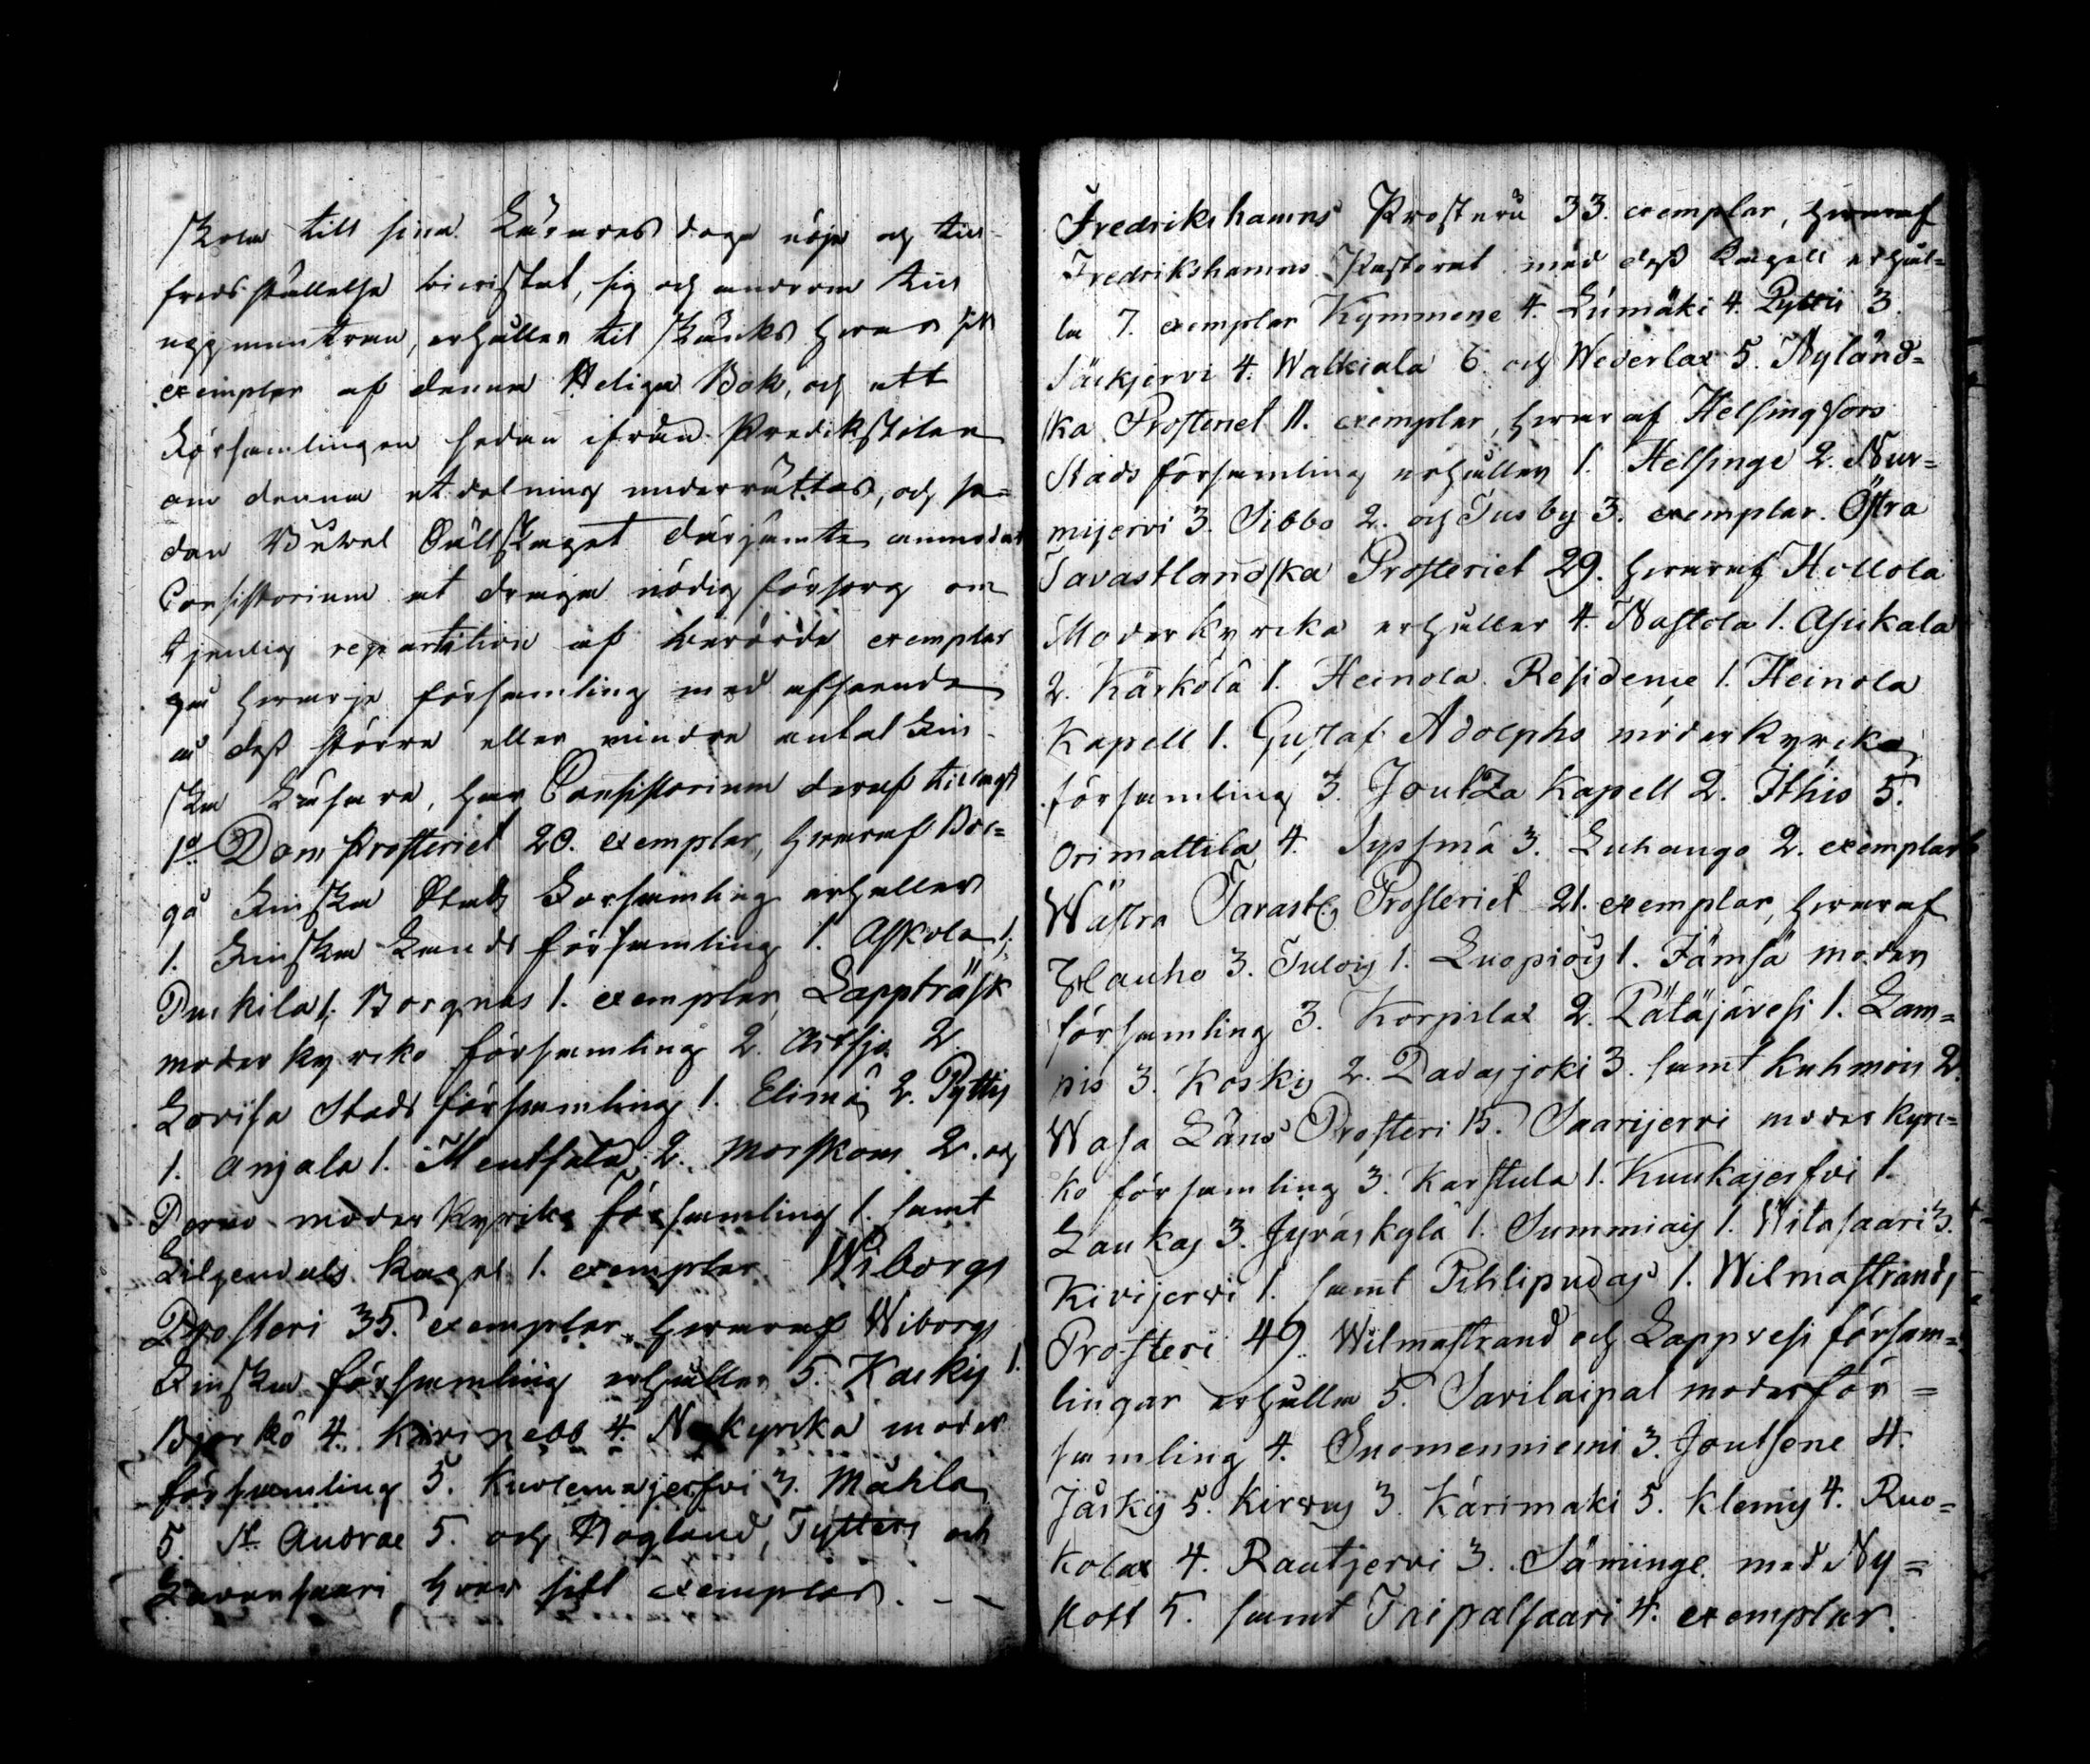 skola till sina Lärares doga nöje och till-
fredsställelse beviistat, sig och androm till
uppmuntran, erhåller til skänks hvar sitt
exemplar af denna Heliga Bok, och att
Församlingen sedan ifrån Predikstolen
om denna utdelning underrättas, och se-
dan Bibel Sällskapet därjämte anmodat
Consistorium at draga nödig försorg om
tjenlig repartition af berörde exemplar
på hvarje församling med afseende
å dess större eller mindre antal Fin-
ska Läsare, har Consistorium deraf tillagt
1o Dom Prosteriet 20. exemplar, hvaraf Bor=
gå Finska Stads Församling erhåller
1. Finska Lands församling 1. Askola 1;
Puckila 1; Borgnäs 1. exemplar, Lappträsk
moderkyrko församling 2. Artsjö 2.
Lovisa Stads församling 1. Elimä 2. Pyttis
1. Anjala 1. Mentsala 2. Morskom 2. och
Perno moderkyrko församling 1. samt
Liljendals kapel 1. exemplar Wiborgs
Prosteri 35. exemplar, hvaraf Wiborgs
Finska församling erhåller 5. Kackis 1.
Björkö 4. Kivinebb 4. Nykyrka moder
församling 5. Kuolemajerfvi 3. Måhla
5. St. Andrae 5. och Hogland, Tytters och
Lavansaari hvar sitt exemplar. - -
Fredrikshamns Prosteri 33. exemplar, hvaraf
Fredrikshamns Pastorat med dess Kapell erhål=
la 7. exemplar Kymmene 4. Lümäki 4. Pyttis 3.
Säckjervi 4. Walkiala 6. och Wederlax 5. Nyländ=
ska Prosteriet 11. exemplar, hvaraf Helsingfors
Stads församling erhåller 1. Helsinge 2. Nur=
mijervi 3. Sibbo 2. och Tusby 3. exemplar. Östra
Tavastlandska Prosteriet 29. hvaraf Hollola
Moderkyrka erhåller 4. Nastola 1. Asikala
2. Kärkölä 1. Heinola Residence 1. Heinola
Kapell 1. Gustaf Adolphs moderkyrko
församling 3. Joutza Kapell 2. Ithis 5.
Orimattila 4. Syssmä 3. Luhango 2. exemplar
Wästra Tavastl. Prosteriet 21. exemplar, hvaraf
Hauho 3. Tulois 1. Luopiois 1. Jämsä moder
församling 3. Korpilax 2. Pätäjävesi 1. Lam=
pis 3. Koskis 2. Padasjoki 3. samt Kuhmois 2.
Wasa Läns Prosteri 15. Saarijervi moderkyr=
ko församling 3. Karstula 1. Kuukajerfvi 1.
Laukas 3. Jyväskylä 1. Summiais 1. Witasaari 3.
Kivijervi 1. samt Pihlipudas 1. Wilmastrands
Prosteri 49. Wilmastrand och Lappvesi försam=
lingar erhålla 5. Savilaipal moderför=
samling 4. Suomenniemi 3. Joutsene 4.
Jäskis 5. Kirvus 3. Kärimäki 5. Klemis 4. Ruo=
kolax 4. Rautjervi 3. Säminge med Ny=
slott 5. samt Taipalsaari 4. exemplar.